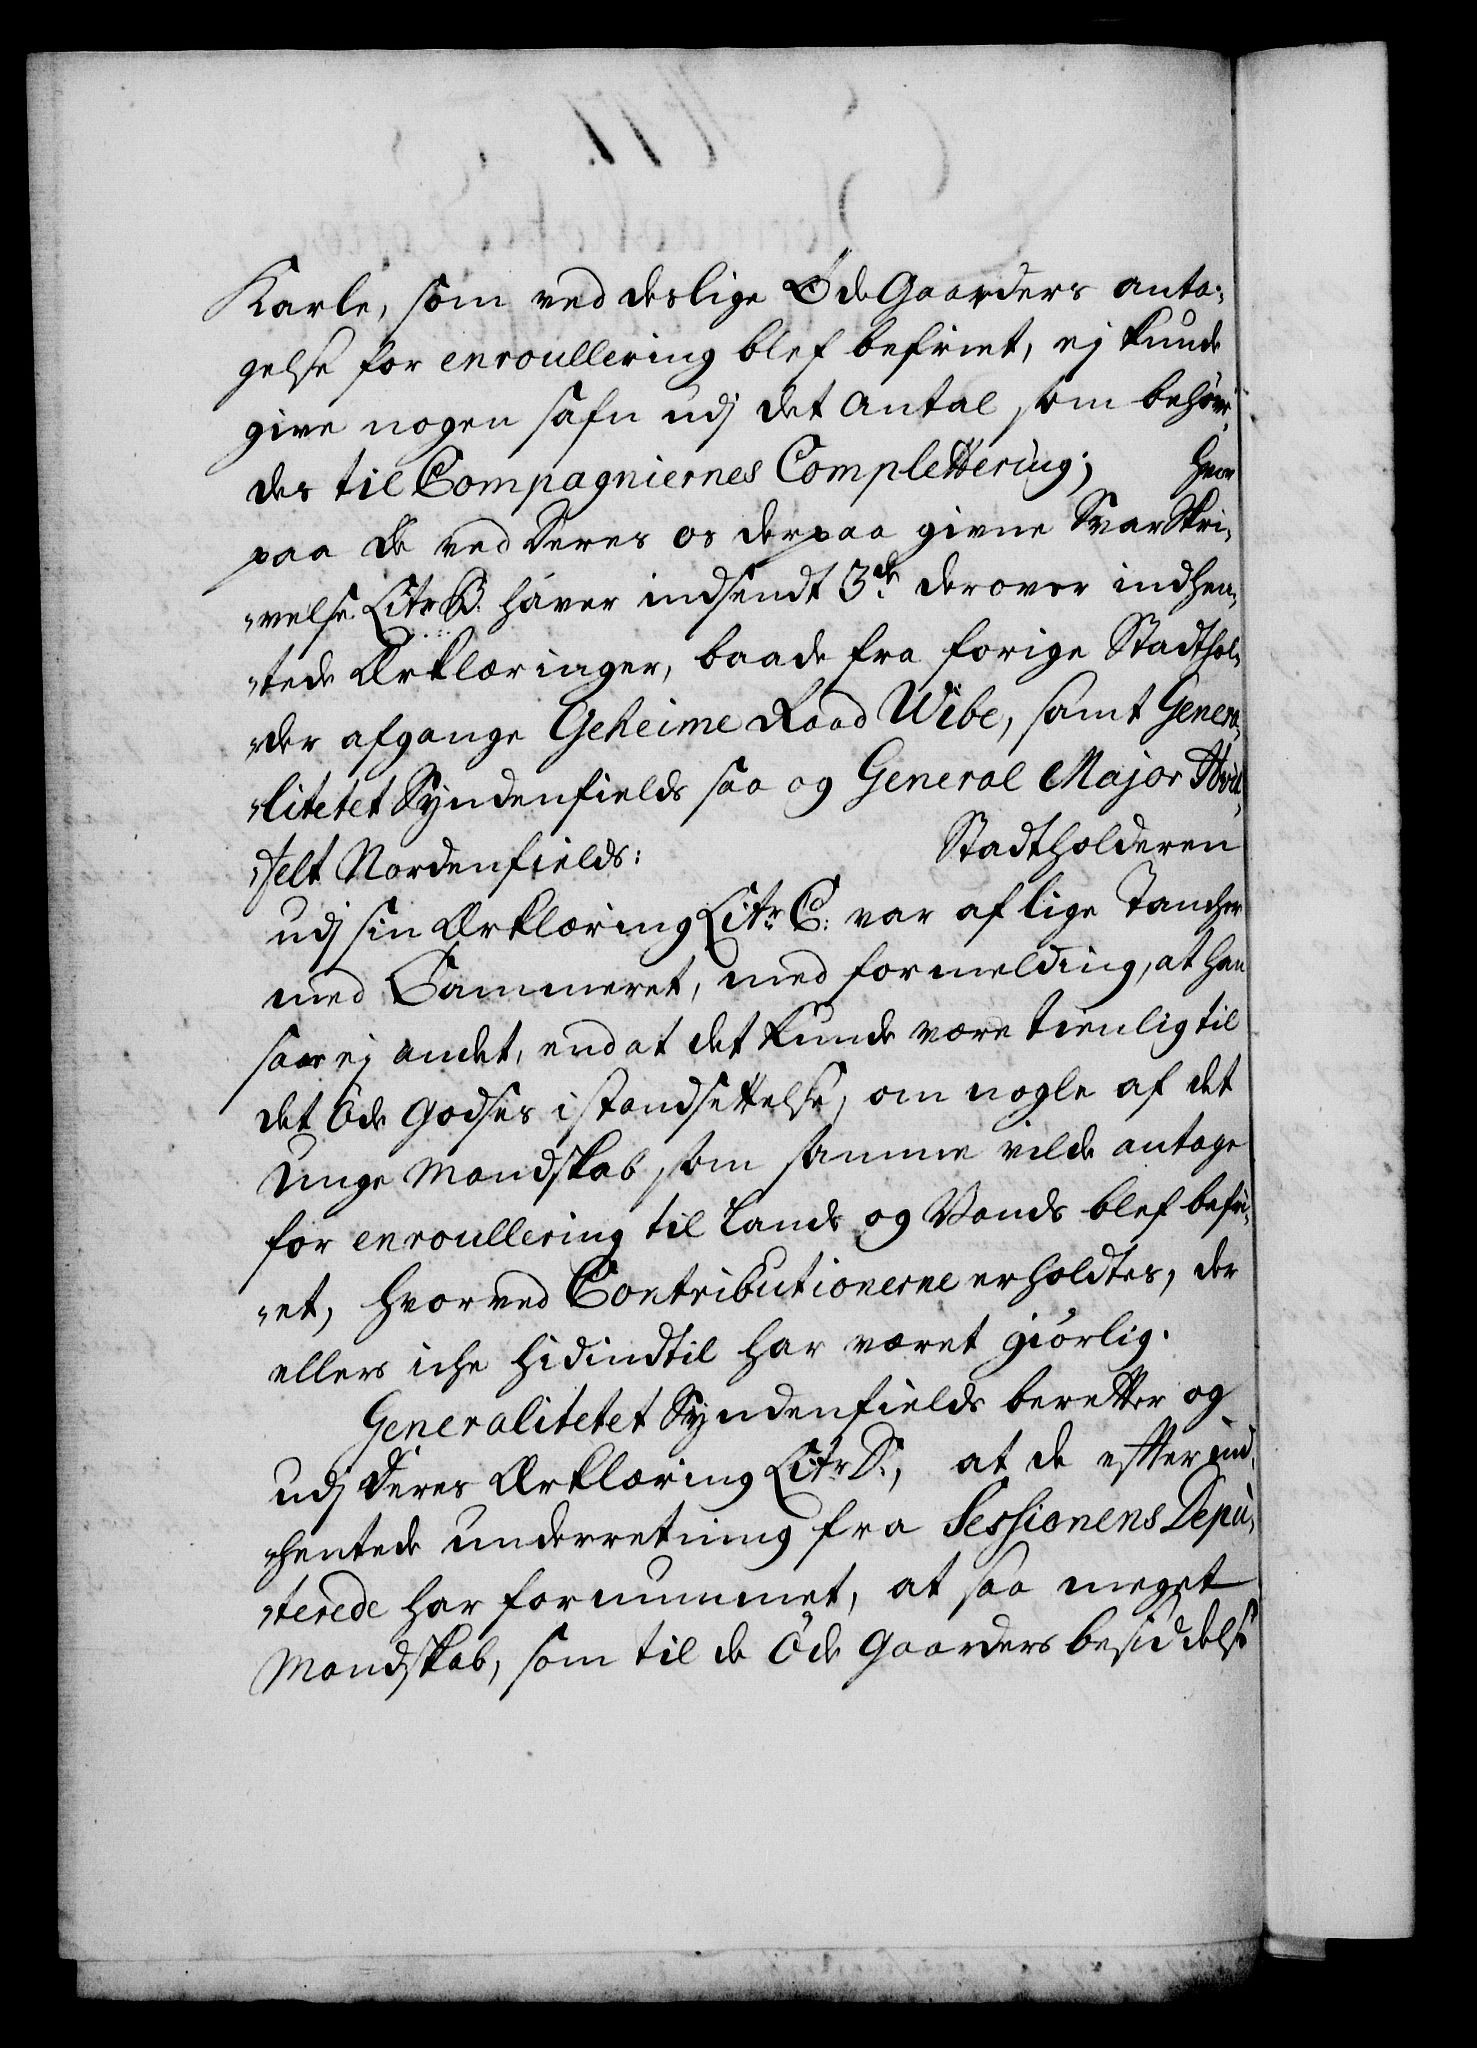 Karle, som ved deslige Øde Gaarders anta-
gelse for enroullering blef befriet, ej kunde
give nogen safn udj det antal som behöve-
des til Compagniernes Complettering; hvor
paa de ved Deres os derpaa givne SvarSkri-
velse Litr B. haver indsendt 3de derover indhen-
tede Erklæringer, baade fra forige Stadthol-
der afgangne Geheime Raad Wibe, samt Genera-
litetet Syndenfields saa og General Major Hvit-
felt Nordenfields: Stadtholderen
udj sin Erklæring Litr C: var af lige Tancher
med Cammeret, med formelding, at han
saae ej andet, end at det kunde være tienlig til
det öde Godses istandsettelse, om nogle af det
Unge Mandskab som samme vilde antage
for enroullering til Lands og Vands blef befri-
et, hvorved Contributionerne erholdtes, der
ellers iche hidindtil har været giörlig.
Generalitetet Syndenfields beretter og
udj Deres Erklæring Litr D:, at de effter ind-
hentede underretning fra Sessionens Depu-
terede har fornummet, at saa meget
Mandskab, som til de Öde Gaarders besiddelse